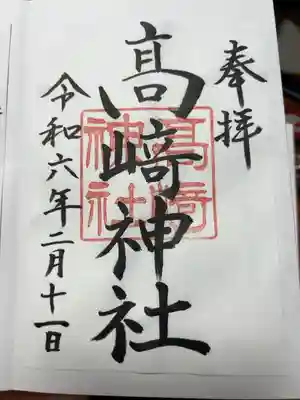 奉拝
髙﨑神社
令和六年二月十一日
髙﨑
神社